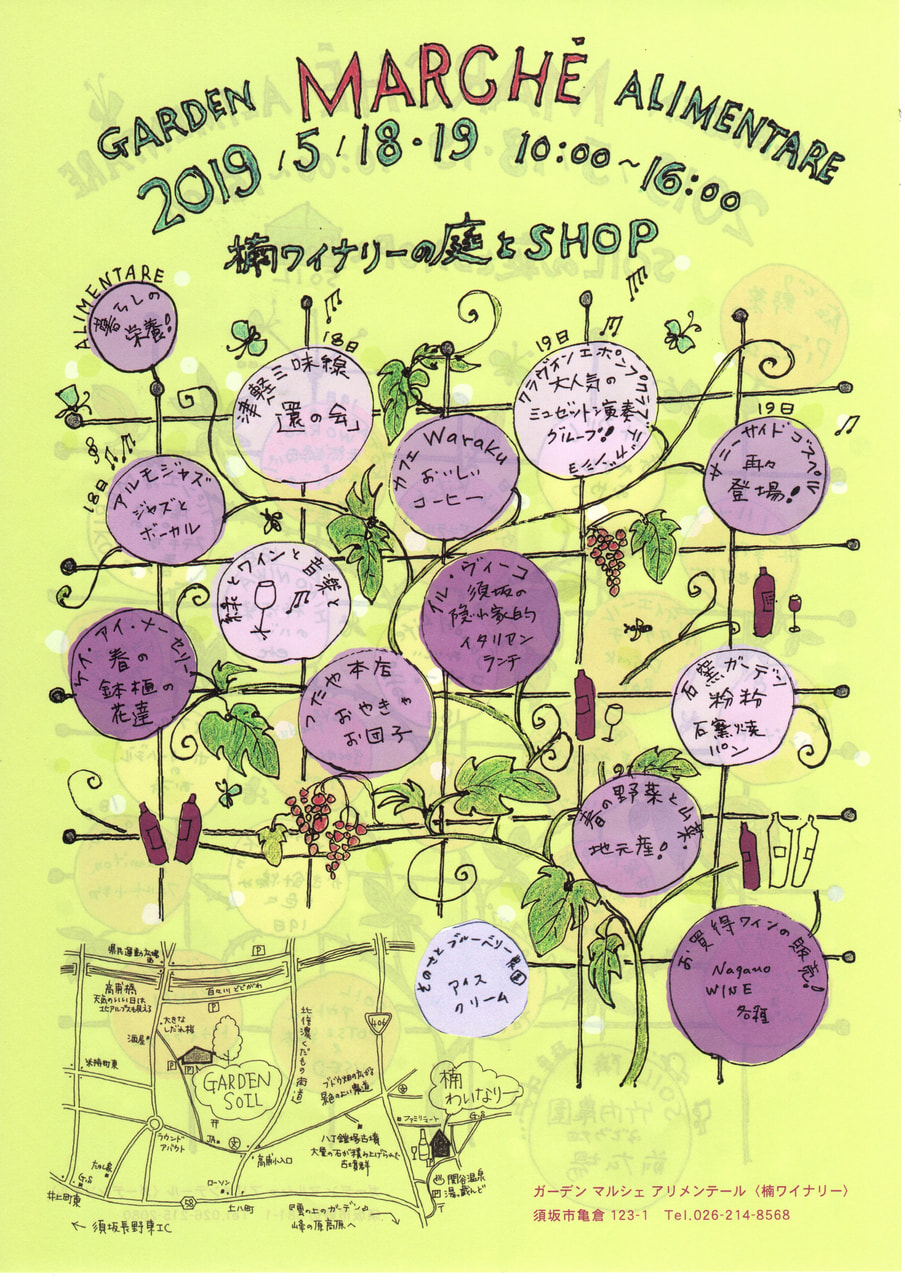 GARDEN MARCHÉ ALIMENTARE
2019/5/18・19 10:00~16:00
楠ワイナリーの庭とSHOP
ALIMENTARE
暮らしの
栄養!
18日
津軽三味線
「還の会」
19日
クラヴィオンエポンプクラブ
大人気の
ミュゼット演奏
グループ!
カフェ Waraku
おいしい
コーヒー
19日
サニーサイドゴスペル
再々
登場!
18日
アルモジャズ
ジャズと
ボーカル
緑とワインと音楽と
イル・ヴィーコ
須坂の
隠れ家的
イタリアン
ランチ
ケイ・アイ・ナーセリー
春の
鉢植の
花達
つたや本店
おやき
お団子
石窯ガーデン
粉粉
石窯焼
パン
春の野菜と山菜
地元産!
そのさとブルーベリー農園
アイス
クリーム
お買得ワインの販売!
Nagano
WINE
各種
県民運動広場
P
高甫橋
天気のいい日は
北アルプスも見える
百々川 どどがわ
P
大きな
しだれ桜
酒屋
P
P
米持町東
GARDEN
SOIL
北信濃くだもの街道
406
ブドウ畑の広がる
景色のよい農道
楠
わいなりー
ファミリーマート
G.S
八丁鎧塚古墳
大量の石が積み上げられた
古墳群
ラウンド
アバウト
JA
文
高甫小入口
G.S
ローソン
井上町東
58
上八町
関谷温泉
湯っ蔵んど
←須坂長野東IC
『雲の上のガーデン』
峰の原高原へ
ガーデン マルシェ アリメンテール〈楠ワイナリー〉
須坂市亀倉 123-1 Tel.026-214-8568